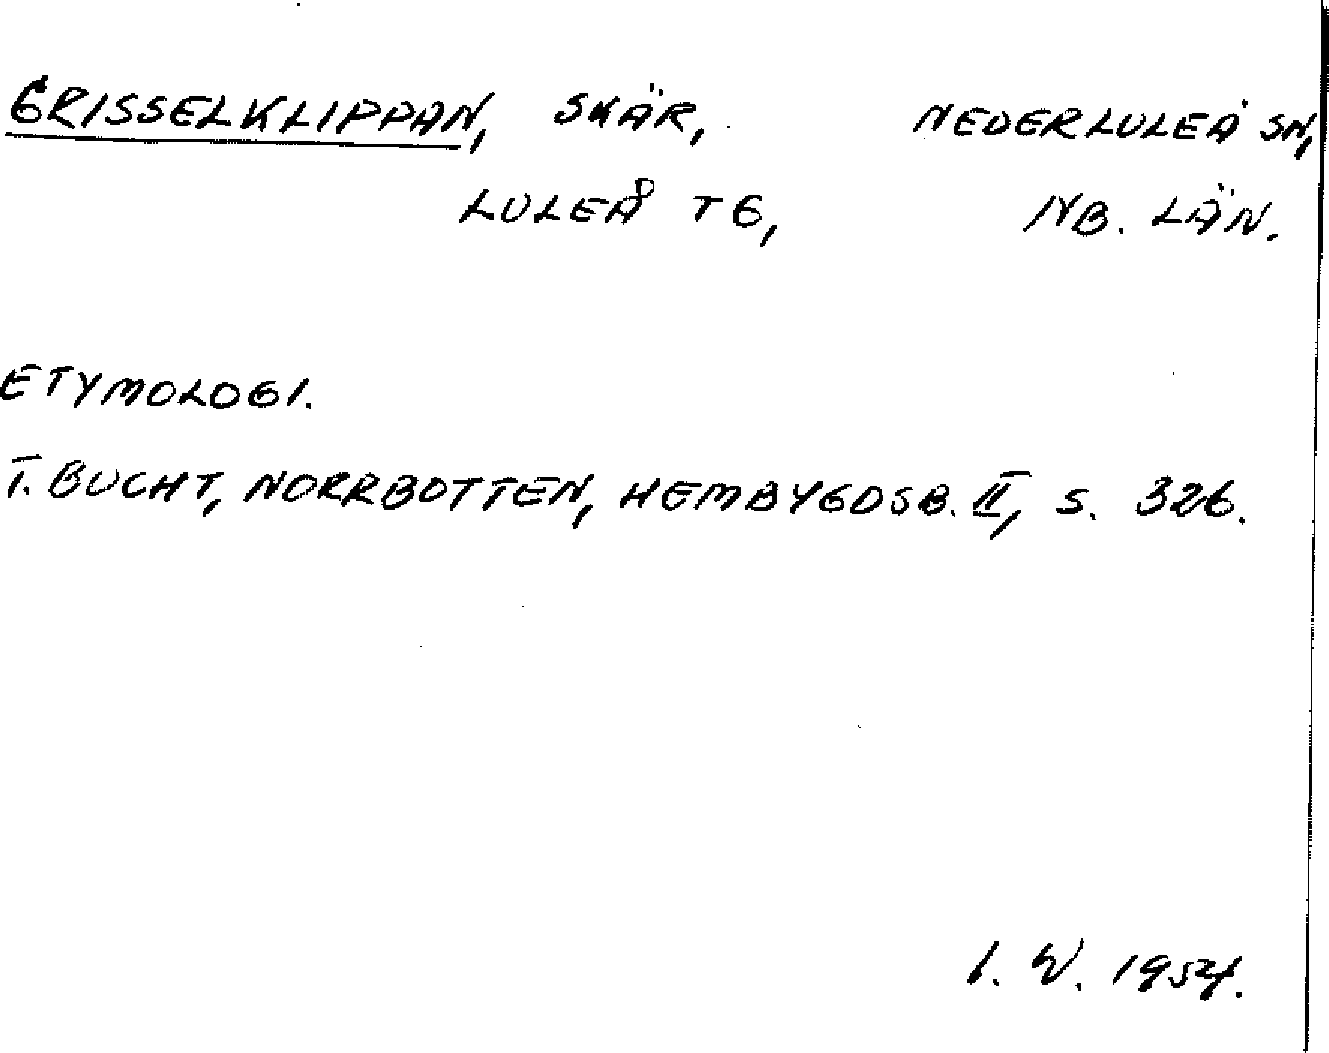 GRISSELKLIPPAN, SKÄR, NEDERLULEÅ SN,
LULEÅ TG, NB. LÄN.
ETYMOLOGI.
T. BUCHT, NORRBOTTEN, HEMBYGDSB. II, S. 326.
I. W. 1954.